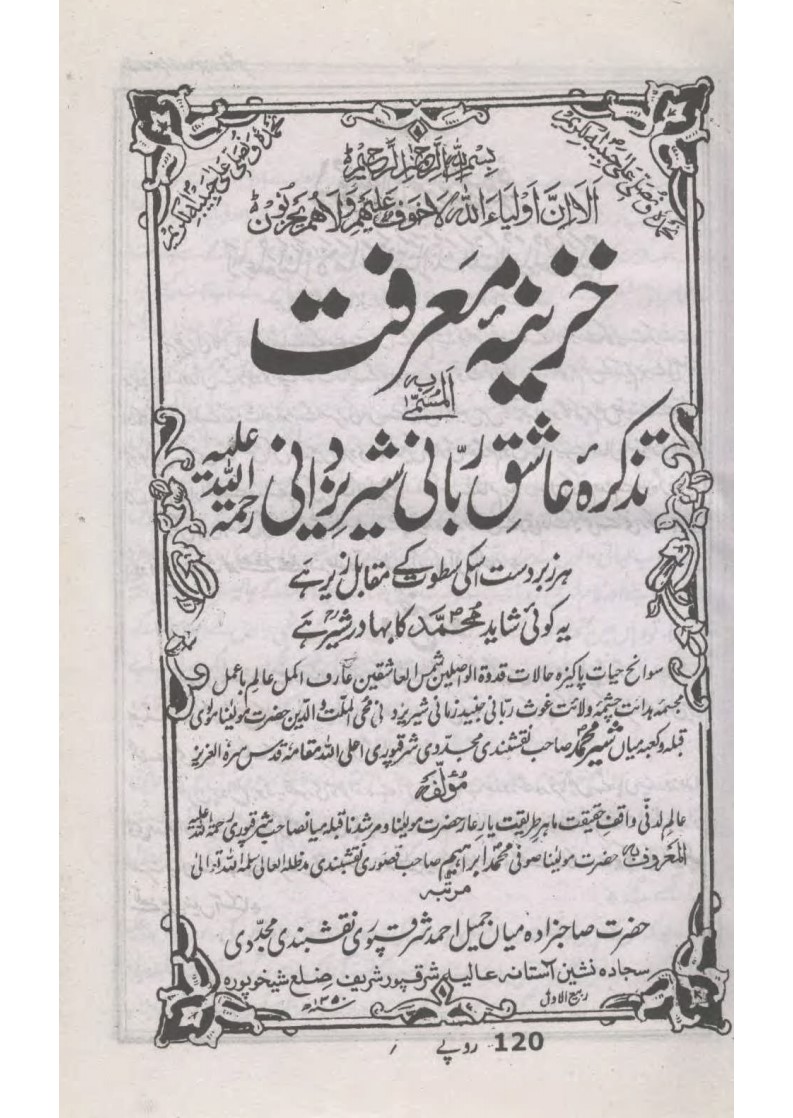 نحمدہ و نصلی علی حبیبہ الکریم
نحمدہ و نصلی علی حبیبہ الکریم
بسم اللہ الرحمن الرحیم
الا ان اولیاء اللہ لا خوف علیہم ولا ہم یحزنون
خزینۂ معرفت
المسمّٰی بہ
تذکرۂ عاشقِ ربّانی شیرِ یزدانی رحمۃ اللہ علیہ
ہر زبردست اسکی سطوت کے مقابل زیر ہے
یہ کوئی شاید محمّدؐ کا بہادر شیر ہے
سوانح حیات پاکیزہ حالات قدوۃ الواصلین شمس العاشقین عارف اکمل عالم باعمل
مجسمۂ ہدایت چشمۂ ولائت غوث ربانی جنید زمانی شیر یزدانی محی الملّت والدّین حضرت مولٰینا مولوی
قبلہ و کعبہ میاں شیر محمدؒ صاحب نقشبندی مجدّدی شرقپوری اعلی اللہ مقامہ قدس سرہ العزیز
مؤلفہ
عالم لدنّی واقفِ حقیقت ماہرِ طریقت یارِ غار حضرت مولٰینا و مرشدنا قبلہ میانصاحب شرقپوری رحمۃ اللہ علیہ
المعروف بہ حضرت مولٰینا صوفی محمّد ابراہیم صاحب قصوری نقشبندی مدظلہ العالی سلمہ اللہ تعالیٰ
مرتبہ
حضرت صاحبزادہ میاں جمیل احمد شرقپوری نقشبندی مجدّدی
سجادہ نشین آستانہ عالیہ شرقپور شریف ضلع شیخوپورہ
ربیع الاول ۱۳۵۰ھ
120 روپے